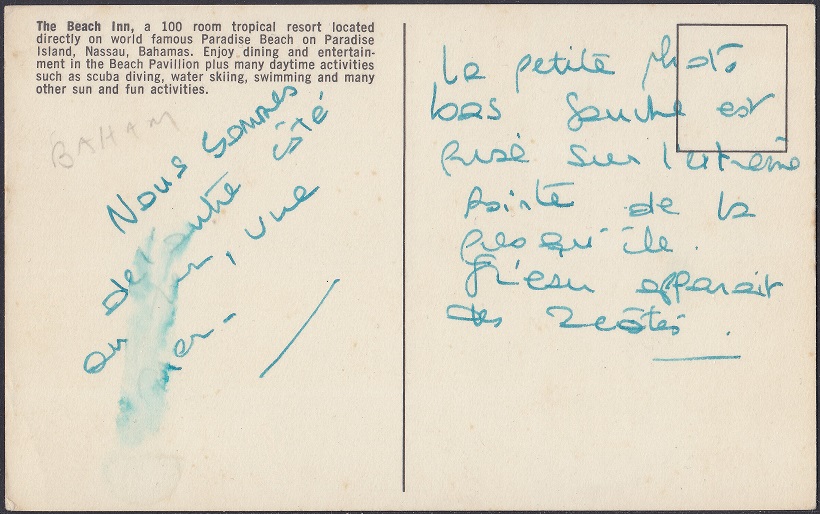 The Beach Inn, a 100 room tropical resort located
directly on world famous Paradise Beach on Paradise
Island, Nassau, Bahamas. Enjoy dining and entertain-
ment in the Beach Pavillion plus many daytime activities
such as scuba diving, water skiing, swimming and many
other sun and fun activities.
BAHAM
Nous sommes
de l'autre côté
au , vue
mer.
La petite photo
bas gauche est
prise sur l'extrême
pointe de la
presqu'île.
L'eau apparait
des 2 côtés.